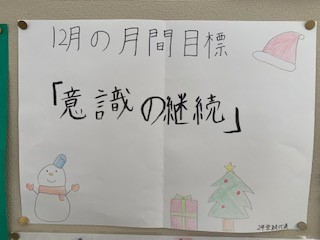 12月の月間目標
「意識の継続」